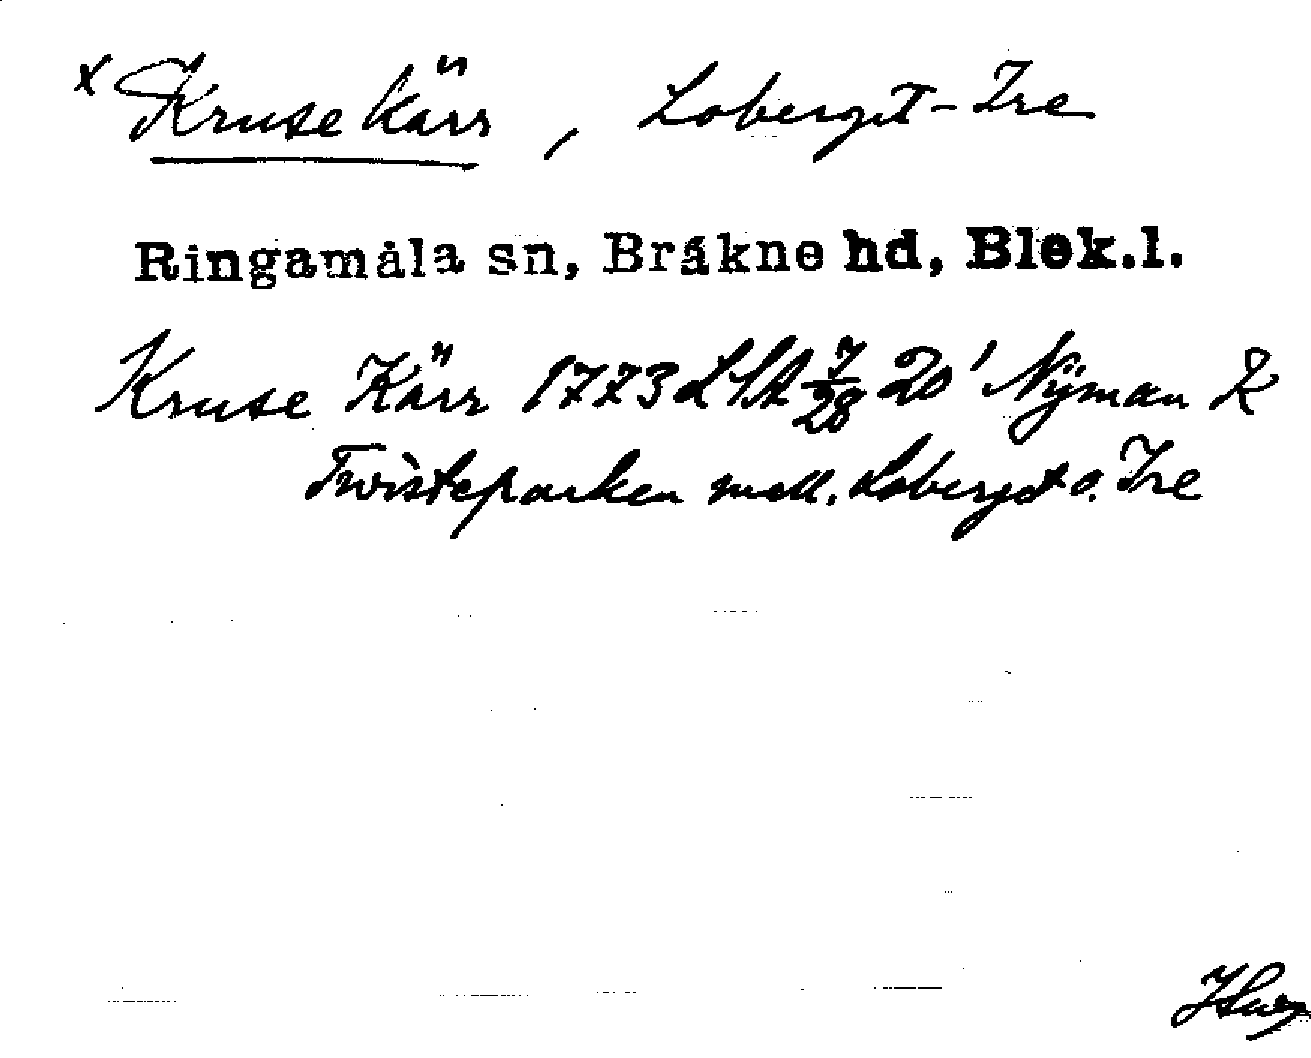 x Kruse kärr, Loberget-Ire
Ringamåla sn, Bräkne hd, Blek.l.
Kruse Kärr 1773 LSA 7/28 20' Nÿman K
Twisteparken mell. Loberget o. Ire